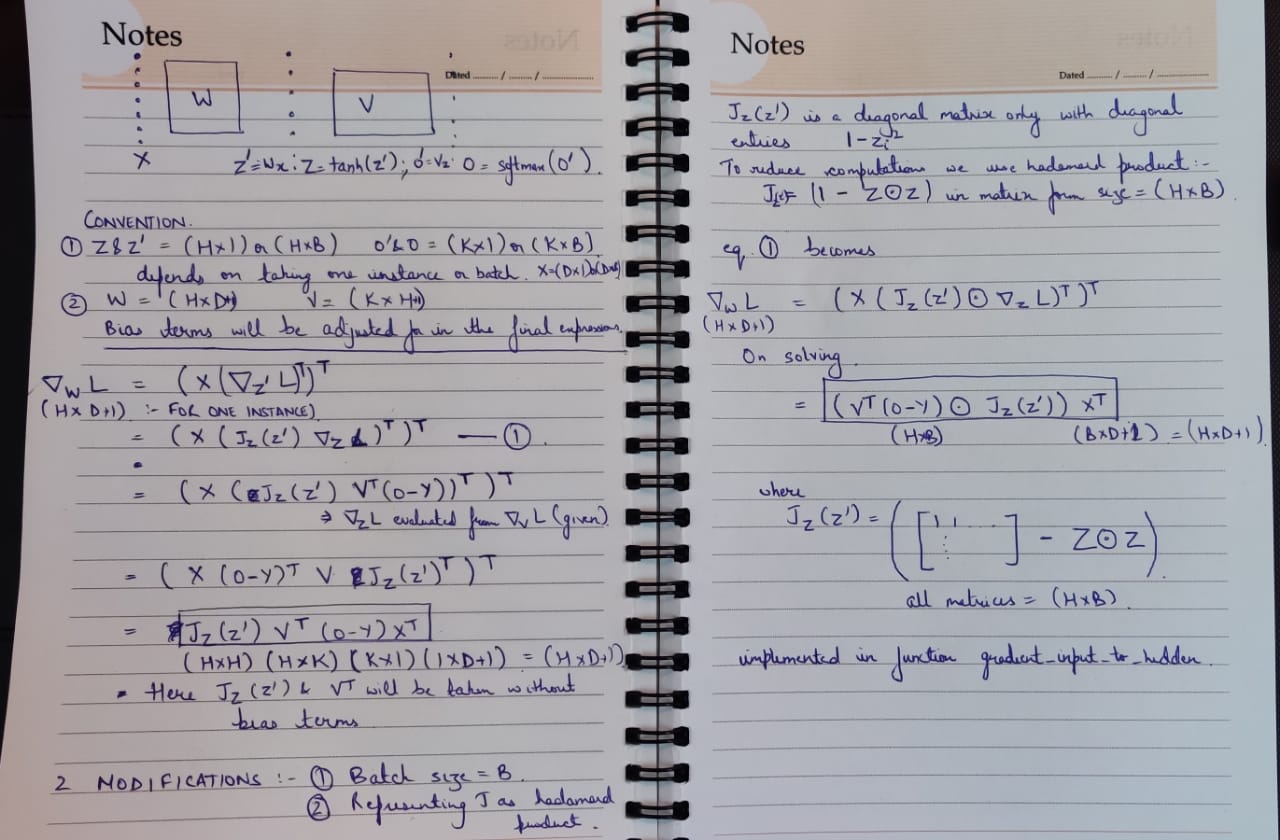 Notes
Dated ......... / ......... / ...................
W
V
X
Z'=Wx ; Z=tanh(z') ; o'=Vz ; O = softmax(O').
CONVENTION.
① Z & z' = (H×1) or (H×B) O' & O = (K×1) or (K×B)
depends on taking one instance or batch. X=(D×1)
② W = (H×D+1) V = (K×H+1)
Bias terms will be adjusted in the final expressions.
∇_W L = (X(∇_z' L)^T)^T
(H×D+1) :- FOR ONE INSTANCE)
= (X (J_z(z') ∇_z L)^T)^T — ①.
= (X (J_z(z') V^T(O-Y))^T)^T
⇒ ∇_z L evaluated from ∇_V L (given)
= (X (O-Y)^T V J_z(z')^T)^T
= J_z(z') V^T (O-Y) X^T
(H×H) (H×K) (K×1) (1×D+1) = (H×D+1)
• Here J_z(z') & V^T will be taken without
bias terms
2 MODIFICATIONS :- ① Batch size = B.
② Representing J as hadamard
product.
Notes
Dated ......... / ......... / ...................
J_z(z') is a diagonal matrix only with diagonal
entries 1-z_i^2
To reduce computations we use hadamard product:-
(1 - Z⊙Z) in matrix form size = (H×B).
eq. ① becomes
∇_W L = (X (J_z(z') ⊙ ∇_z L)^T)^T
(H×D+1)
On solving
= (V^T(O-Y) ⊙ J_z(z')) X^T
(H×B) (B×D+1) = (H×D+1)
where
J_z(z') = ([1 1 ....] - Z⊙Z).
all metrices = (H×B).
implemented in function gradient_input_to_hidden.